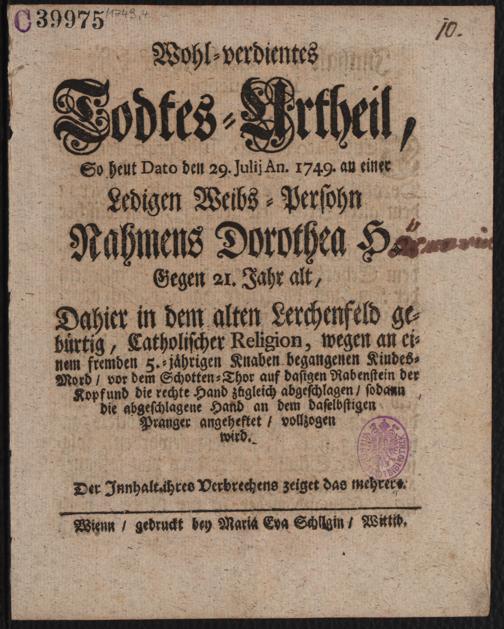 C39975/1749,4
10.
Wohl-verdientes
Todtes-Urtheil,
So heut Dato den 29. Julij An. 1749. an einer
Ledigen Weibs-Persohn
Nahmens Dorothea
Gegen 21. Jahr alt,
Dahier in dem alten Lerchenfeld ge-
bürtig, Catholischer Religion, wegen an ei-
nem fremden 5.-jährigen Knaben begangenen Kindes-
Mord / vor dem Schotten-Thor auf dasigen Rabenstein der
Kopf und die rechte Hand zugleich abgeschlagen / sodann
die abgeschlagene Hand an dem daselbstigen
Pranger angeheftet / vollzogen
wird.
Der Innhalt ihres Verbrechens zeiget das mehrere.
Wienn / gedruckt bey Maria Eva Schilgin / Wittib.